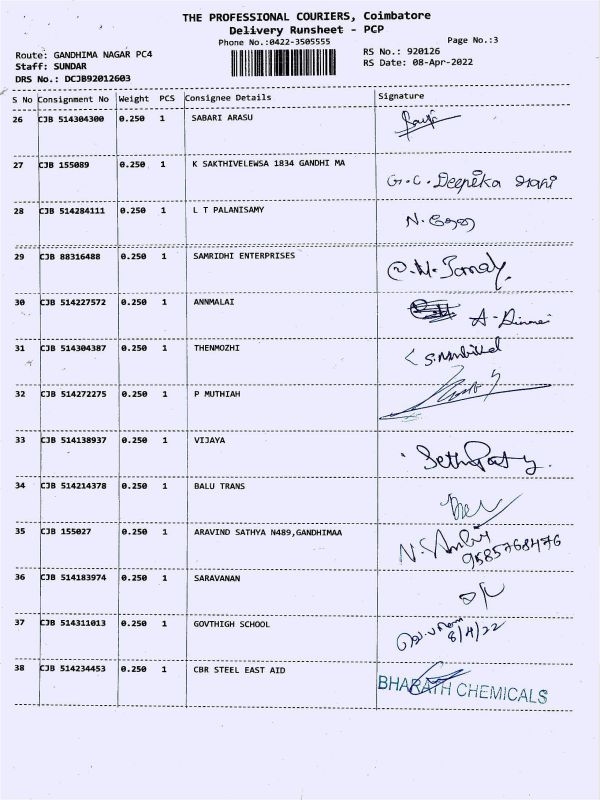 THE PROFESSIONAL COURIERS, Coimbatore
Delivery Runsheet - PCP
Phone No.:0422-3505555
Page No.:3
Route: GANDHIMA NAGAR PC4
RS No.: 920126
Staff: SUNDAR
RS Date: 08-Apr-2022
DRS No.: DCJB92012603
S No Consignment No Weight PCS Consignee Details Signature
26 CJB 514304300 0.250 1 SABARI ARASU
27 CJB 155089 0.250 1 K SAKTHIVELEWSA 1834 GANDHI MA G.C. Deepika
28 CJB 514284111 0.250 1 L T PALANISAMY
29 CJB 88316488 0.250 1 SAMRIDHI ENTERPRISES
30 CJB 514227572 0.250 1 ANNMALAI
31 CJB 514304387 0.250 1 THENMOZHI
32 CJB 514272275 0.250 1 P MUTHIAH
33 CJB 514138937 0.250 1 VIJAYA
34 CJB 514214378 0.250 1 BALU TRANS
35 CJB 155027 0.250 1 ARAVIND SATHYA N489,GANDHIMAA
9585768476
36 CJB 514183974 0.250 1 SARAVANAN
37 CJB 514311013 0.250 1 GOVTHIGH SCHOOL
8/4/22
38 CJB 514234453 0.250 1 CBR STEEL EAST AID
BHARATH CHEMICALS